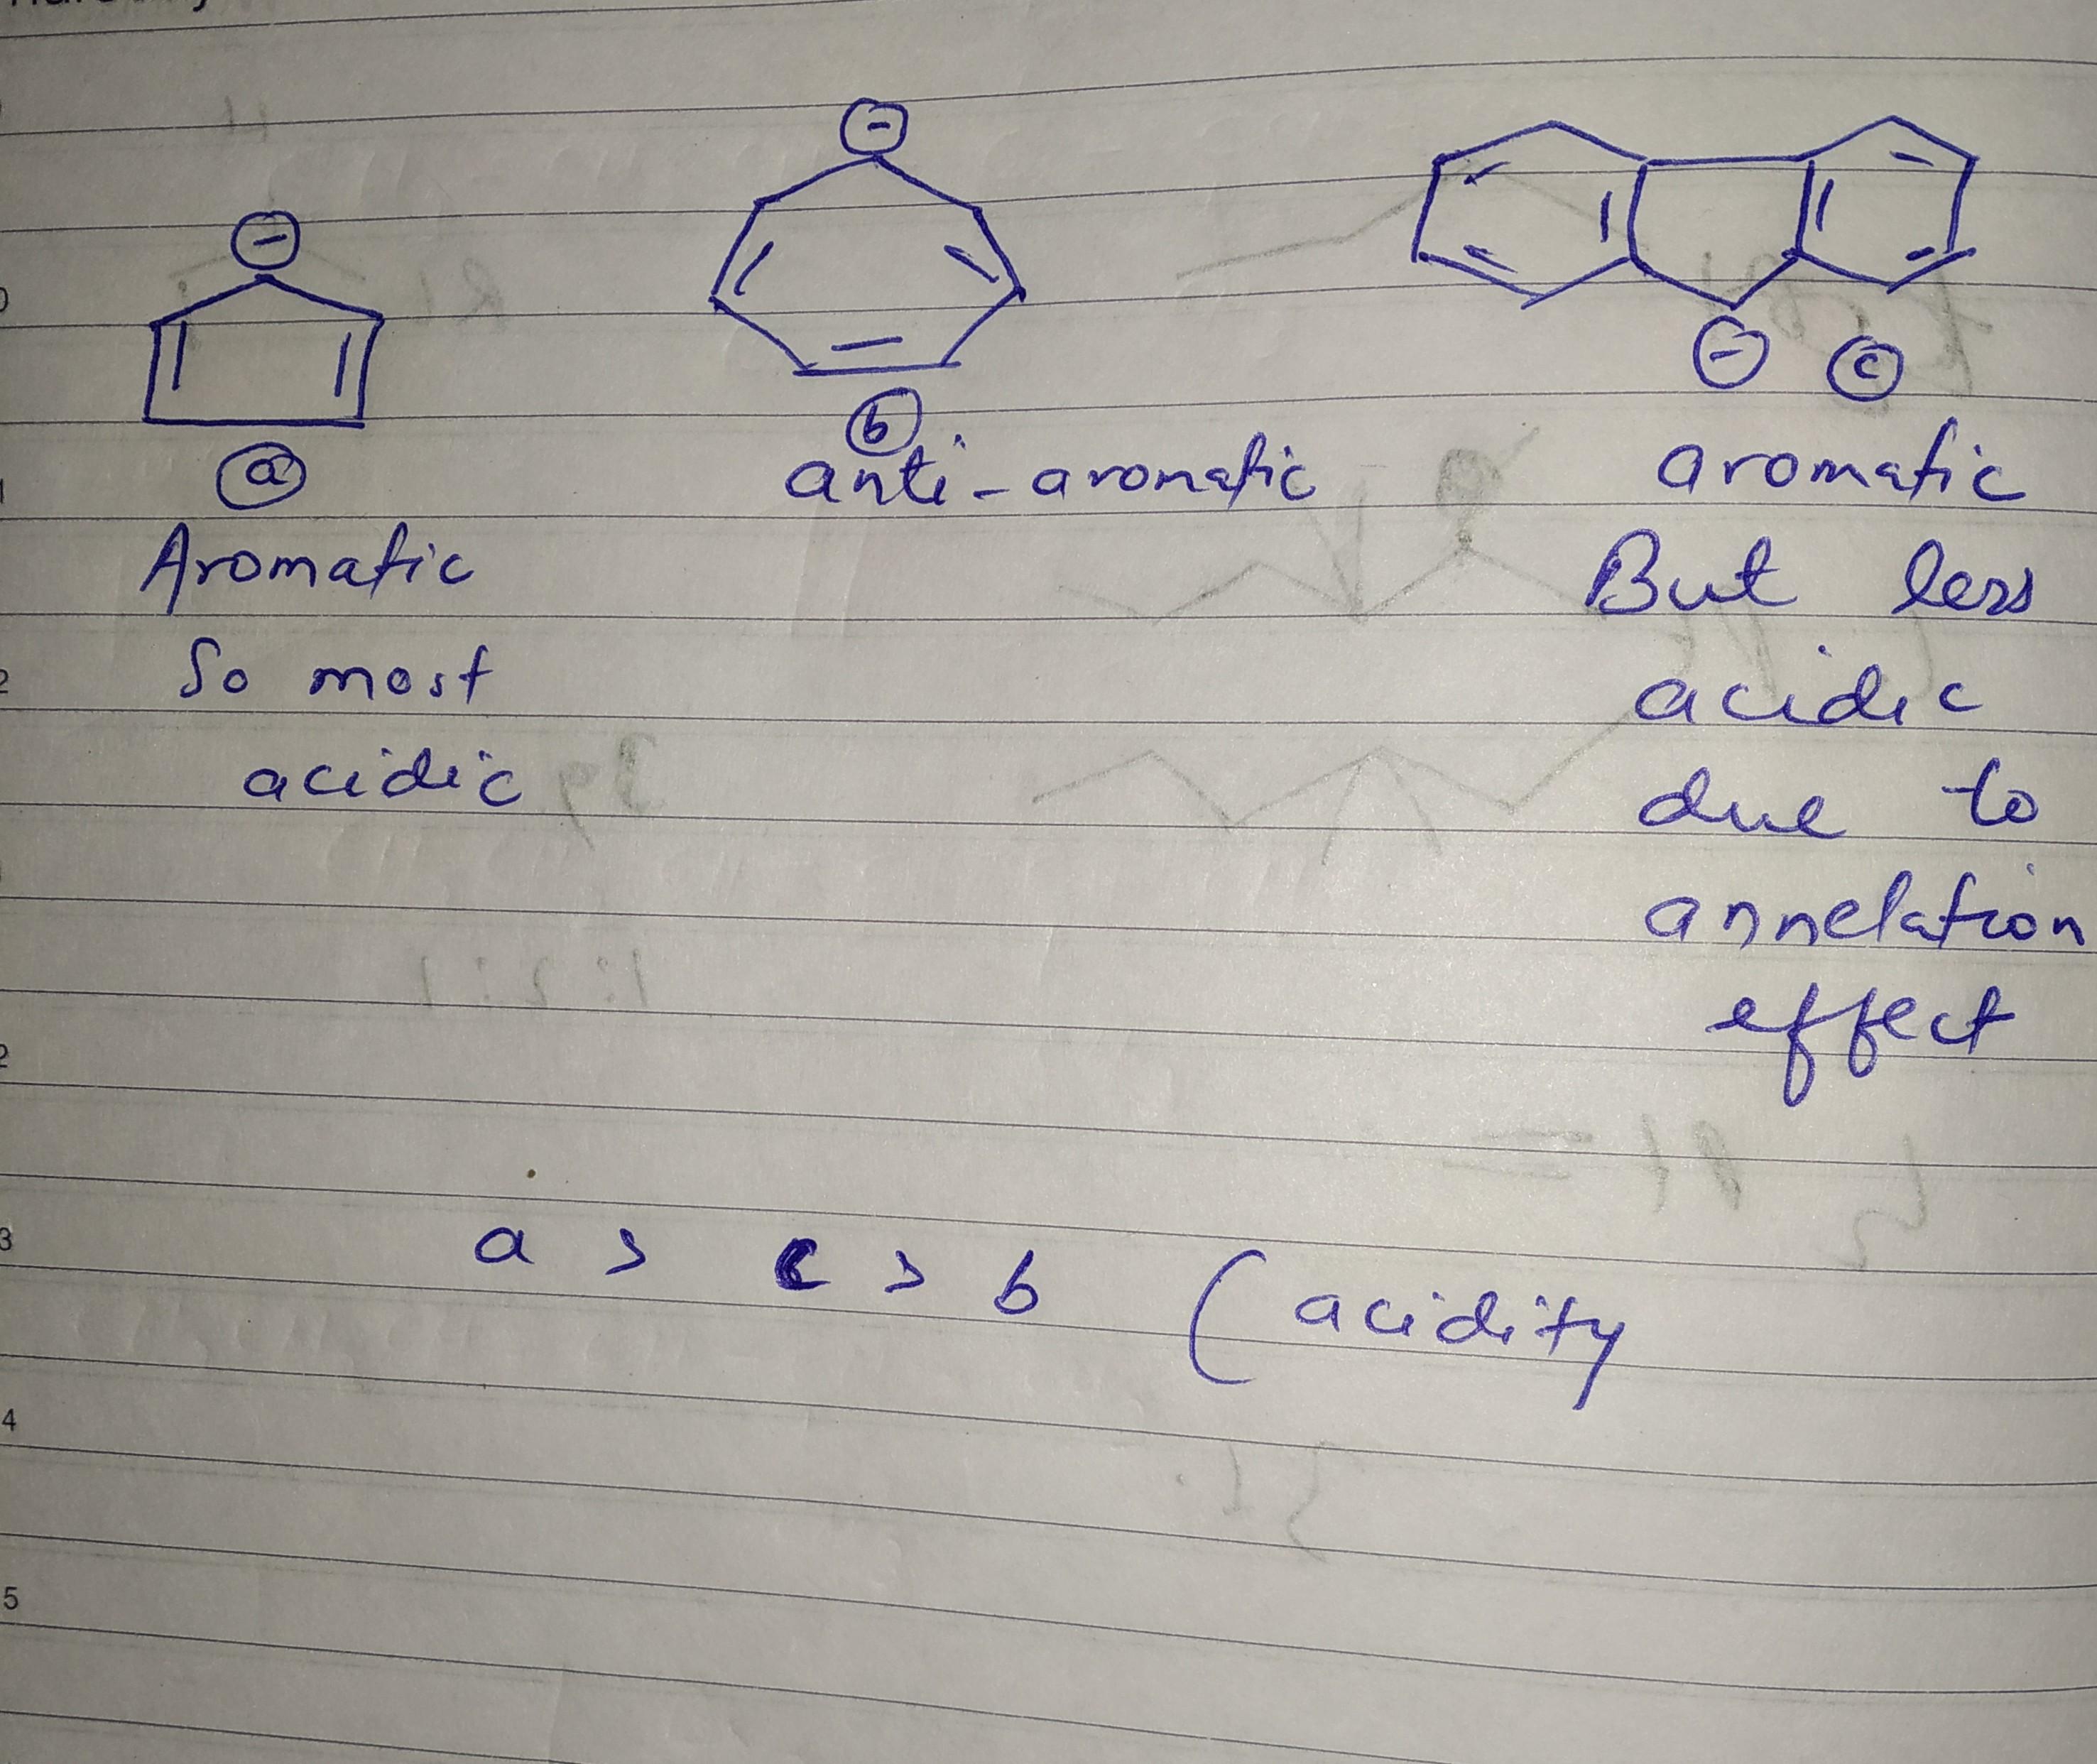 ⊖
⊖
⊖
a
b
c
Aromatic
So most
acidic
anti-aromatic
aromatic
But less
acidic
due to
annelation
effect
a > c > b (acidity
3
4
5